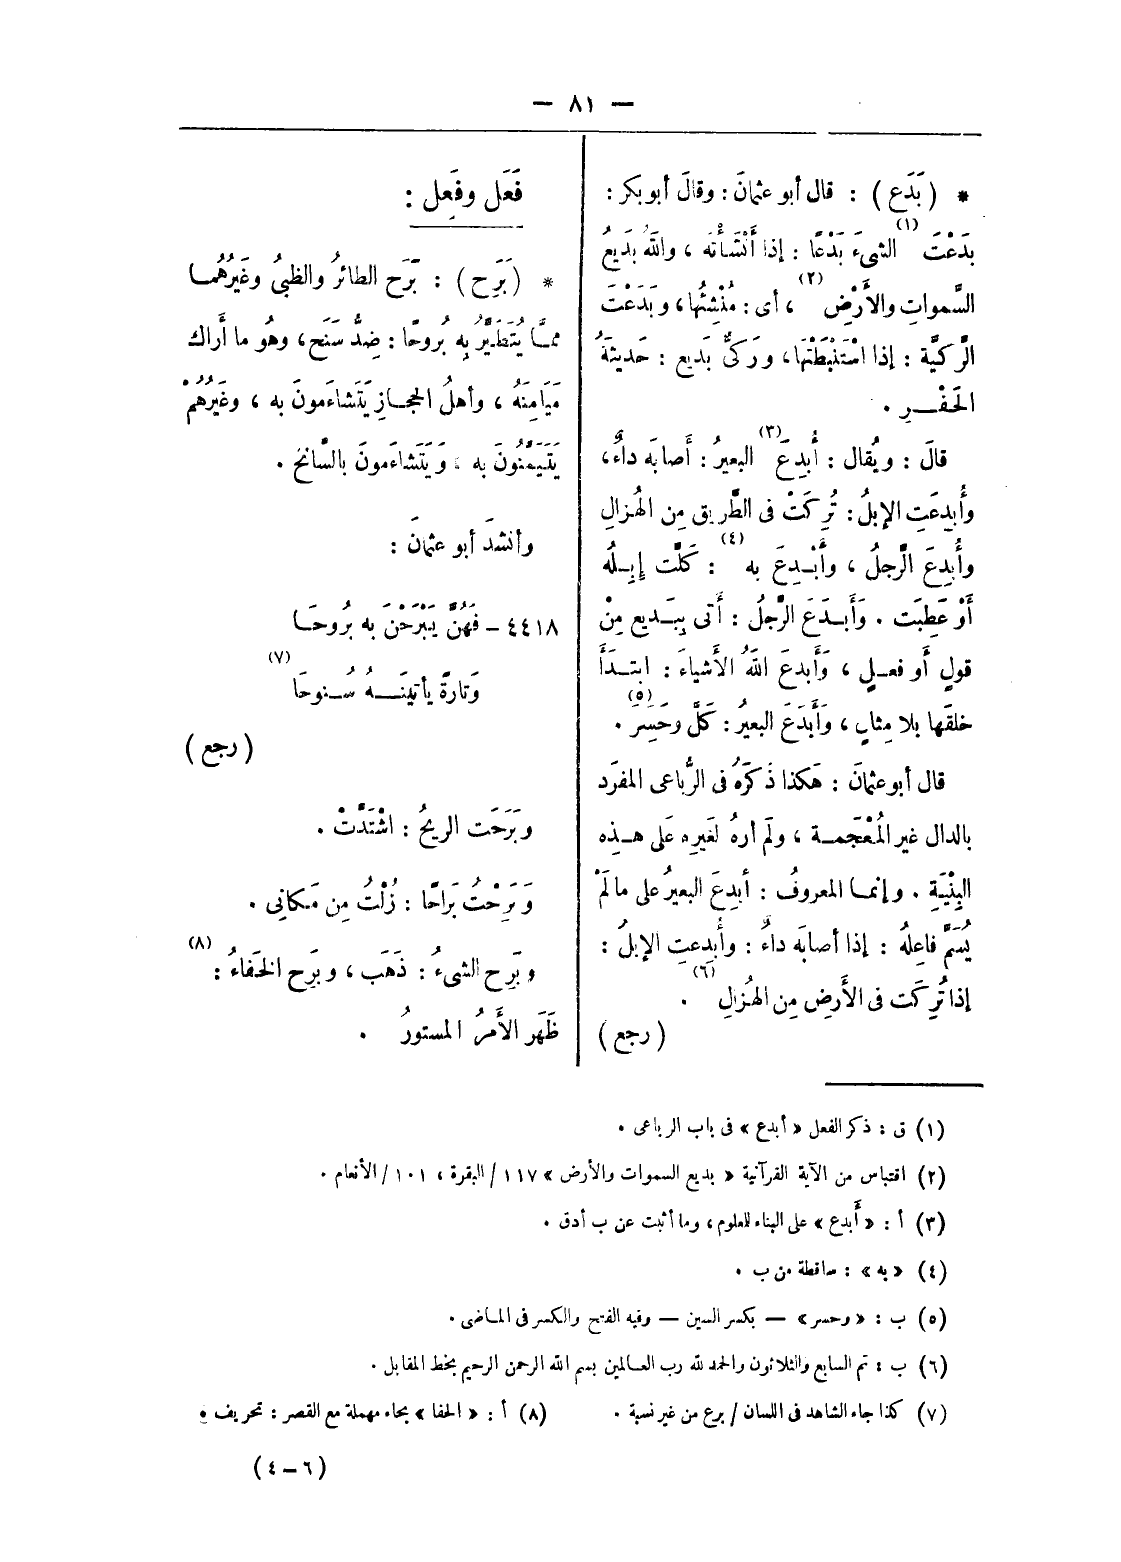 — ٨١ —
* (بَدَع) : قال أبو عثمانَ : وقالَ أبو بكر :
بدَعْتَ (١) الشيءَ بَدْعًا : إذا أَنْشَأْتَه ، واللهُ بَدِيعُ
السَّمواتِ والأَرْضِ (٢) ، أى : مُنْشِئُها ، وبَدَعْتَ
الرَّكيَّة : إذا اسْتَنْبَطْتَها ، ورَكىٌّ بَديع : حَديثَةُ
الحَفْـرِ .
قالَ : ويُقال : أُبدِعَ (٣) البعيرُ : أَصابَه داءٌ ،
وأُبدِعَتِ الإبلُ : تُرِكَتْ فى الطَّريق مِن الهُزالِ
وأُبدِعَ الرَّجلُ ، وأُبْـدِعَ به (٤) : كَلَّت إبِـلُه
أَوْ عَطِبَت . وَأَبـدَعَ الرَّجلُ : أَتى بِبَـديع مِنْ
قولٍ أَو فعـلٍ ، وَأَبدعَ اللهُ الأَشياءَ : ابتـدَأَ
خلقَها بلا مِثالٍ ، وَأَبدَعَ البعيرُ : كَلَّ وحَسِرَ (٥) .
قال أبو عثمانَ : هَكذا ذَكرَهُ فى الرُّباعى المفرَد
بالدال غير المُعْجَمـة ، ولَم أرهُ لغَيرِه عَلى هـذِه
البِنْيَةِ . وإنمـا المعروفُ : أُبدِعَ البعيرُ على ما لَمْ
يُسَمَّ فاعِلهُ : إذا أصابَه داءٌ : وأُبدِعتِ الإبلُ :
إذا تُرِكَت فى الأَرضِ مِن الهُزالِ (٦) .
( رجع )
فَعَل وفَعِل :
* (بَرِح) : بَرَح الطائرُ والظبىُ وغَيرُهُمـا
ممَّـا يُتَطَيَّرُ بِه بُروحًا : ضِدُّ سَنَح ، وهُو ما أَراك
مَيَامِنَهُ ، وأهلُ الحجـازِ يَتَشاءَمونَ به ، وغَيْرُهُمْ
يَتَيَمَّنُونَ به ، وَيَتَشاءَمونَ بالسَّانح .
وأنشدَ أبو عثمانَ :
٤٤١٨ – فَهُنَّ يَبْرَحْنَ به بُروحَـا
وَتارةً يأتينَـــهُ سُـنوحَا (٧)
( رجع )
وبَرَحَت الريحُ : اشْتَدَّتْ .
وَبَرِحْتُ بَرَاحًا : زُلْتُ مِن مَكانِى .
وبَرِح الشىءُ : ذَهَب ، وبَرِح الخَفاءُ (٨) :
ظَهَر الأَمرُ المستورُ .
(١) ق : ذكر الفعل « أبدع » فى باب الرباعى .
(٢) اقتباس من الآية القرآنية « بديع السموات والأرض » ١١٧ / البقرة ، ١٠١ / الأنعام .
(٣) أ : « أَبدع » على البناء للمعلوم ، وما أثبت عن ب أدق .
(٤) « به » : ساقطة من ب .
(٥) ب : « وحسر » — بكسر السين — وفيه الفتح والكسر فى المـاضى .
(٦) ب : تم السابع والثلاثون والحمد لله رب العـالمين بسم الله الرحمن الرحيم بخط المقابل .
(٧) كذا جاء الشاهد فى اللسان / برح من غير نسبة . (٨) أ : « الحفا » بحاء مهملة مع القصر : تحريف .
(٦ – ٤)